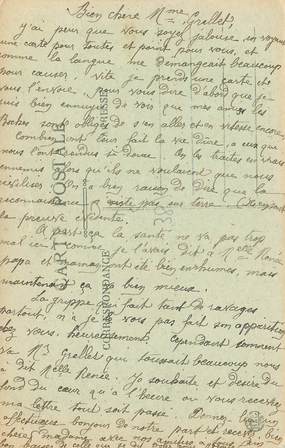 Bien chère Mme Grellet,
j'ai peur que vous soyez jalouse, en voyant
une carte pour toutes et point pour vous, et
comme la langue me démangeait beaucoup
pour causer, vite je prends une carte et
vous l'envoie. Pour vous dire d'abord que je
suis bien ennuyée de voir que mes amis les
Boches sont obligés de s'en aller et en vitesse encore
Combien ont tous fait la vie dure, à ceux que
nous l'ont rendue si douce. les traités en vrais
ennemis alors qu'ils ne voulaient que nous
civiliser. On a bien raison de dire que la
reconnaissance n'existe pas sur terre
la preuve évidente.
A part ça la santé ne va pas trop
mal ici comme je l'avais dit à Melle
papa et maman ont été bien enrhumés, mais
maintenant ça va bien mieux.
La grippe qui fait tant de ravages
partout, n'a je vois pas fait son apparition
chez vous. heureusement. Cependant comment
va Mr Grellet qui toussait beaucoup nous
a dit Melle Renée. Je souhaite et désire du
fond du cœur qu'à l'heure où vous recevrez
ma lettre tout soit passé. Donnez
affectueux bonjours de notre part et recevez
chère madame avec nos amitiés
CARTE POSTALE
CORRESPONDANCE
ADRESSE